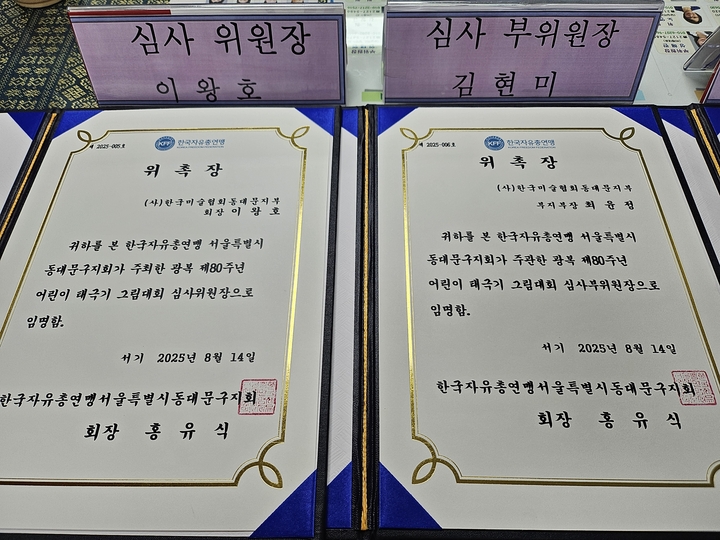 심사 위원장
이 왕 호
심사 부위원장
김 현 미
제 2025-005호
KFF 한국자유총연맹
위 촉 장
(사)한국미술협회동대문지부
회장 이 왕 호
귀하를 본 한국자유총연맹 서울특별시
동대문구지회가 주최한 광복 제80주년
어린이 태극기 그림대회 심사위원장으로
임명함.
서기 2025년 8월 14일
한국자유총연맹서울특별시동대문구지회
회장 홍 유 식
제 2025-006호
KFF 한국자유총연맹
위 촉 장
(사)한국미술협회동대문지부
부지부장 최 윤 정
귀하를 본 한국자유총연맹 서울특별시
동대문구지회가 주관한 광복 제80주년
어린이 태극기 그림대회 심사부위원장으로
임명함.
서기 2025년 8월 14일
한국자유총연맹서울특별시동대문구지회
회장 홍 유 식